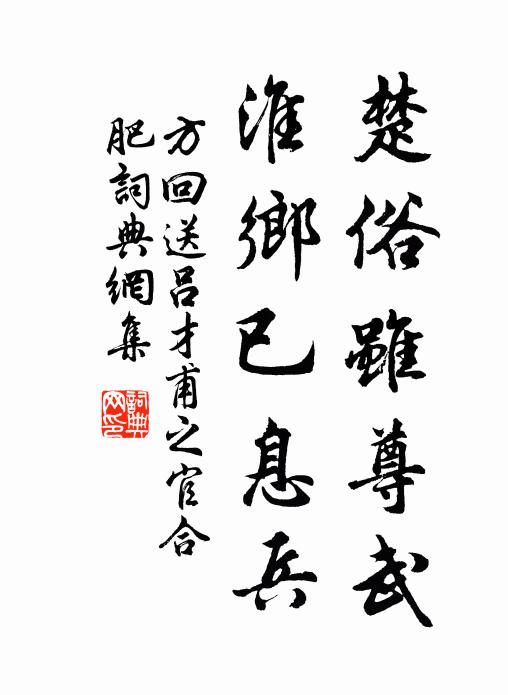 楚俗雖尊武
淮鄉已息兵
方回送呂才甫之官合
肥詞典網集
詞典網印